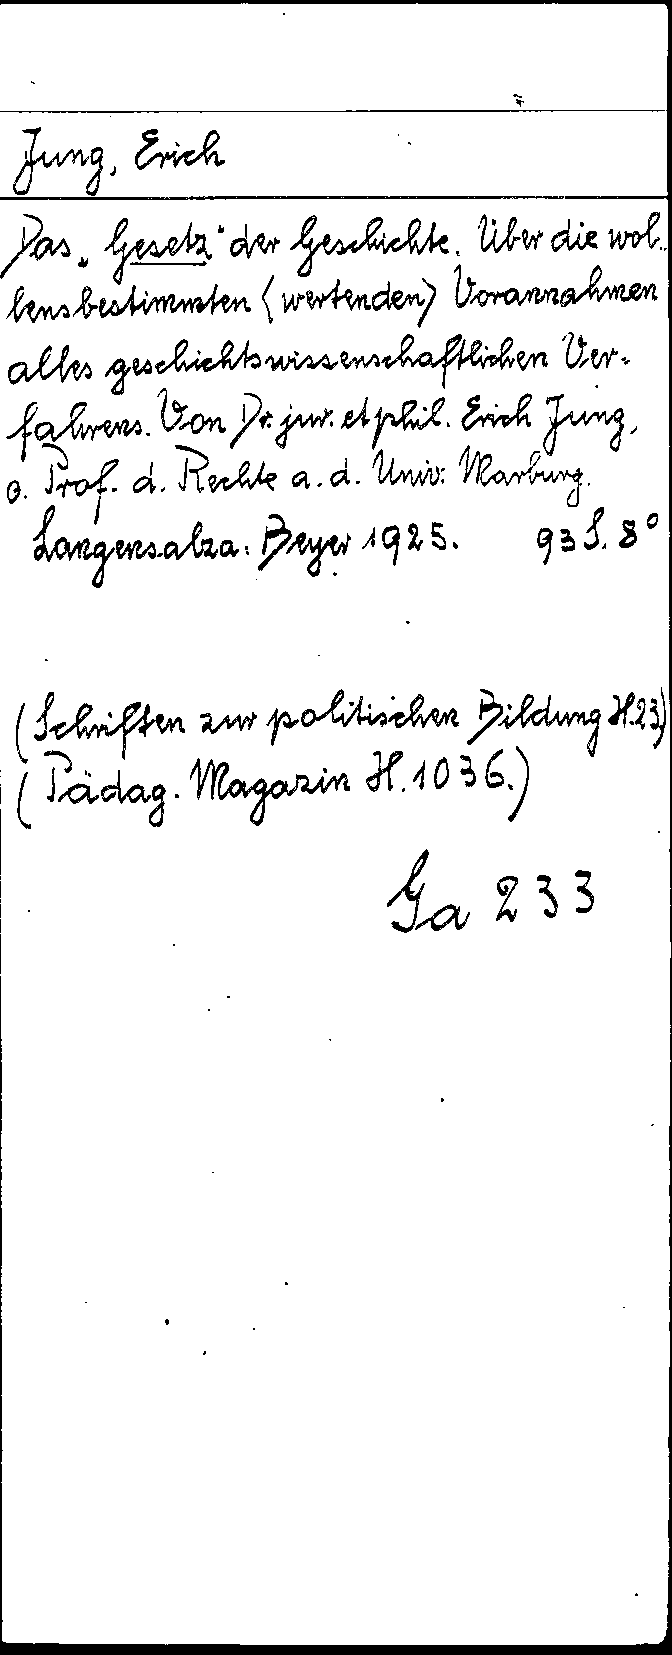 Jung, Erich
Das „Gesetz“ der Geschichte. Über die wol-
lensbestimmten (wertenden) Vorannahmen
alles geschichtswissenschaftlichen Ver-
fahrens. Von Dr. jur. et phil. Erich Jung,
o. Prof. d. Rechte a. d. Univ. Marburg.
Langensalza: Beyer 1925. 93 S. 8°
(Schriften zur politischen Bildung H.23)
(Pädag. Magazin H. 1036.)
Ga 233